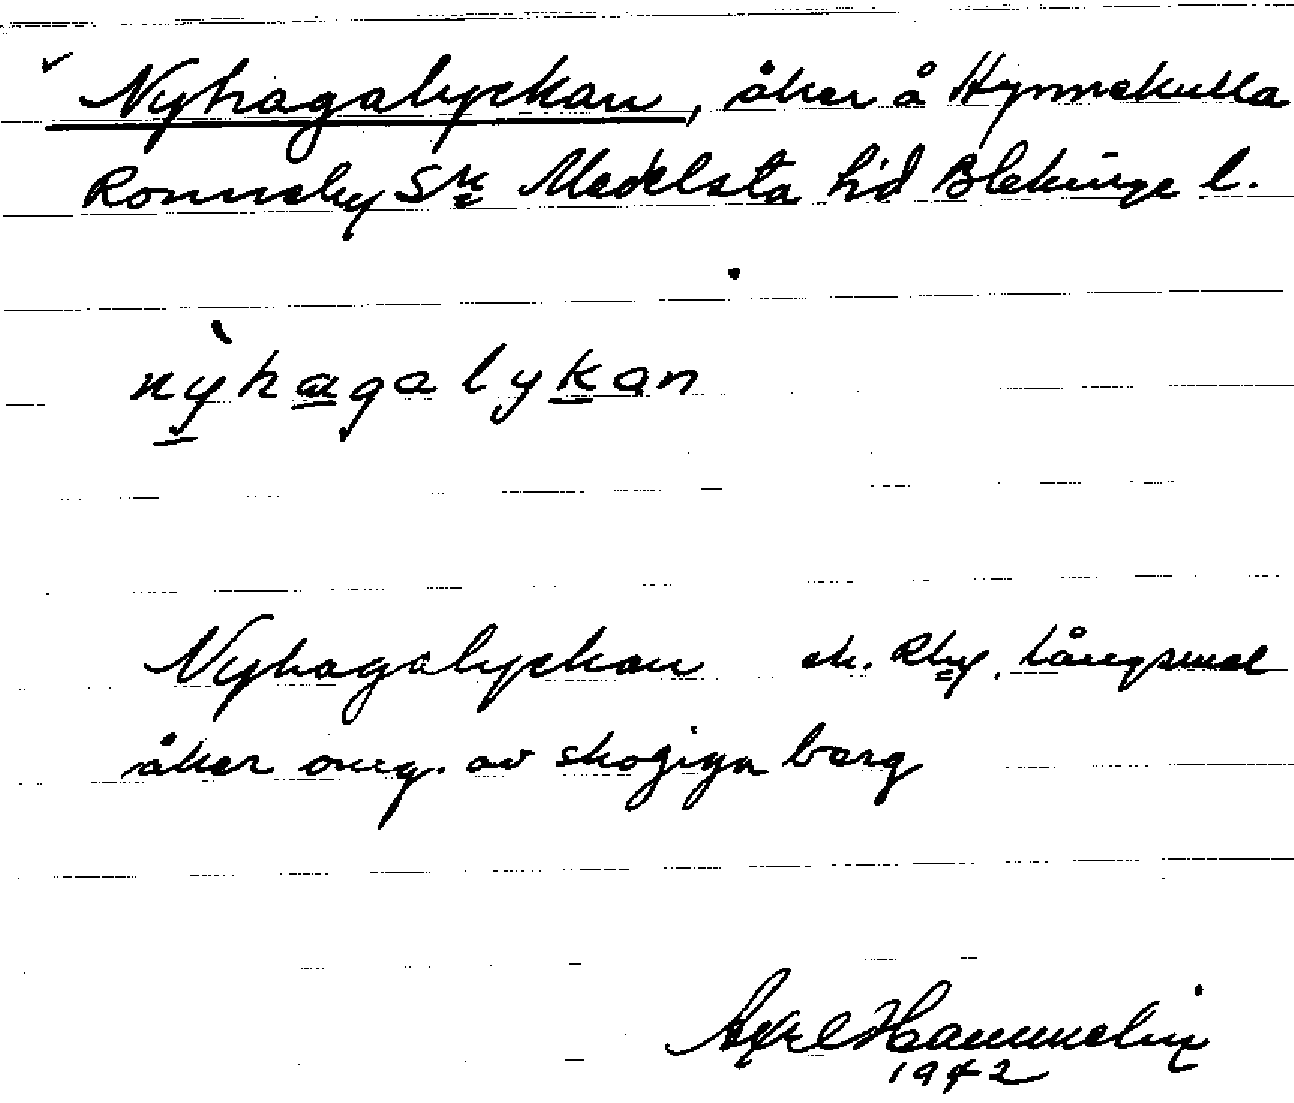 Nyhagalyckan, åker å Hymmekulla
Ronneby Sn Medelsta hd Blekinge l.
nỳhagalykan
Nyhagalyckan ek. Rby. Långsmal
åker omg. av skogign berg
Axel Hammelin
1942